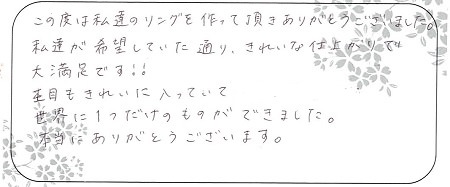 この度は私達のリングを作って頂きありがとうございました。
私達が希望していた通り、きれいな仕上がりで
大満足です!!
杢目もきれいに入っていて
世界に1つだけのものができました。
本当にありがとうございます。